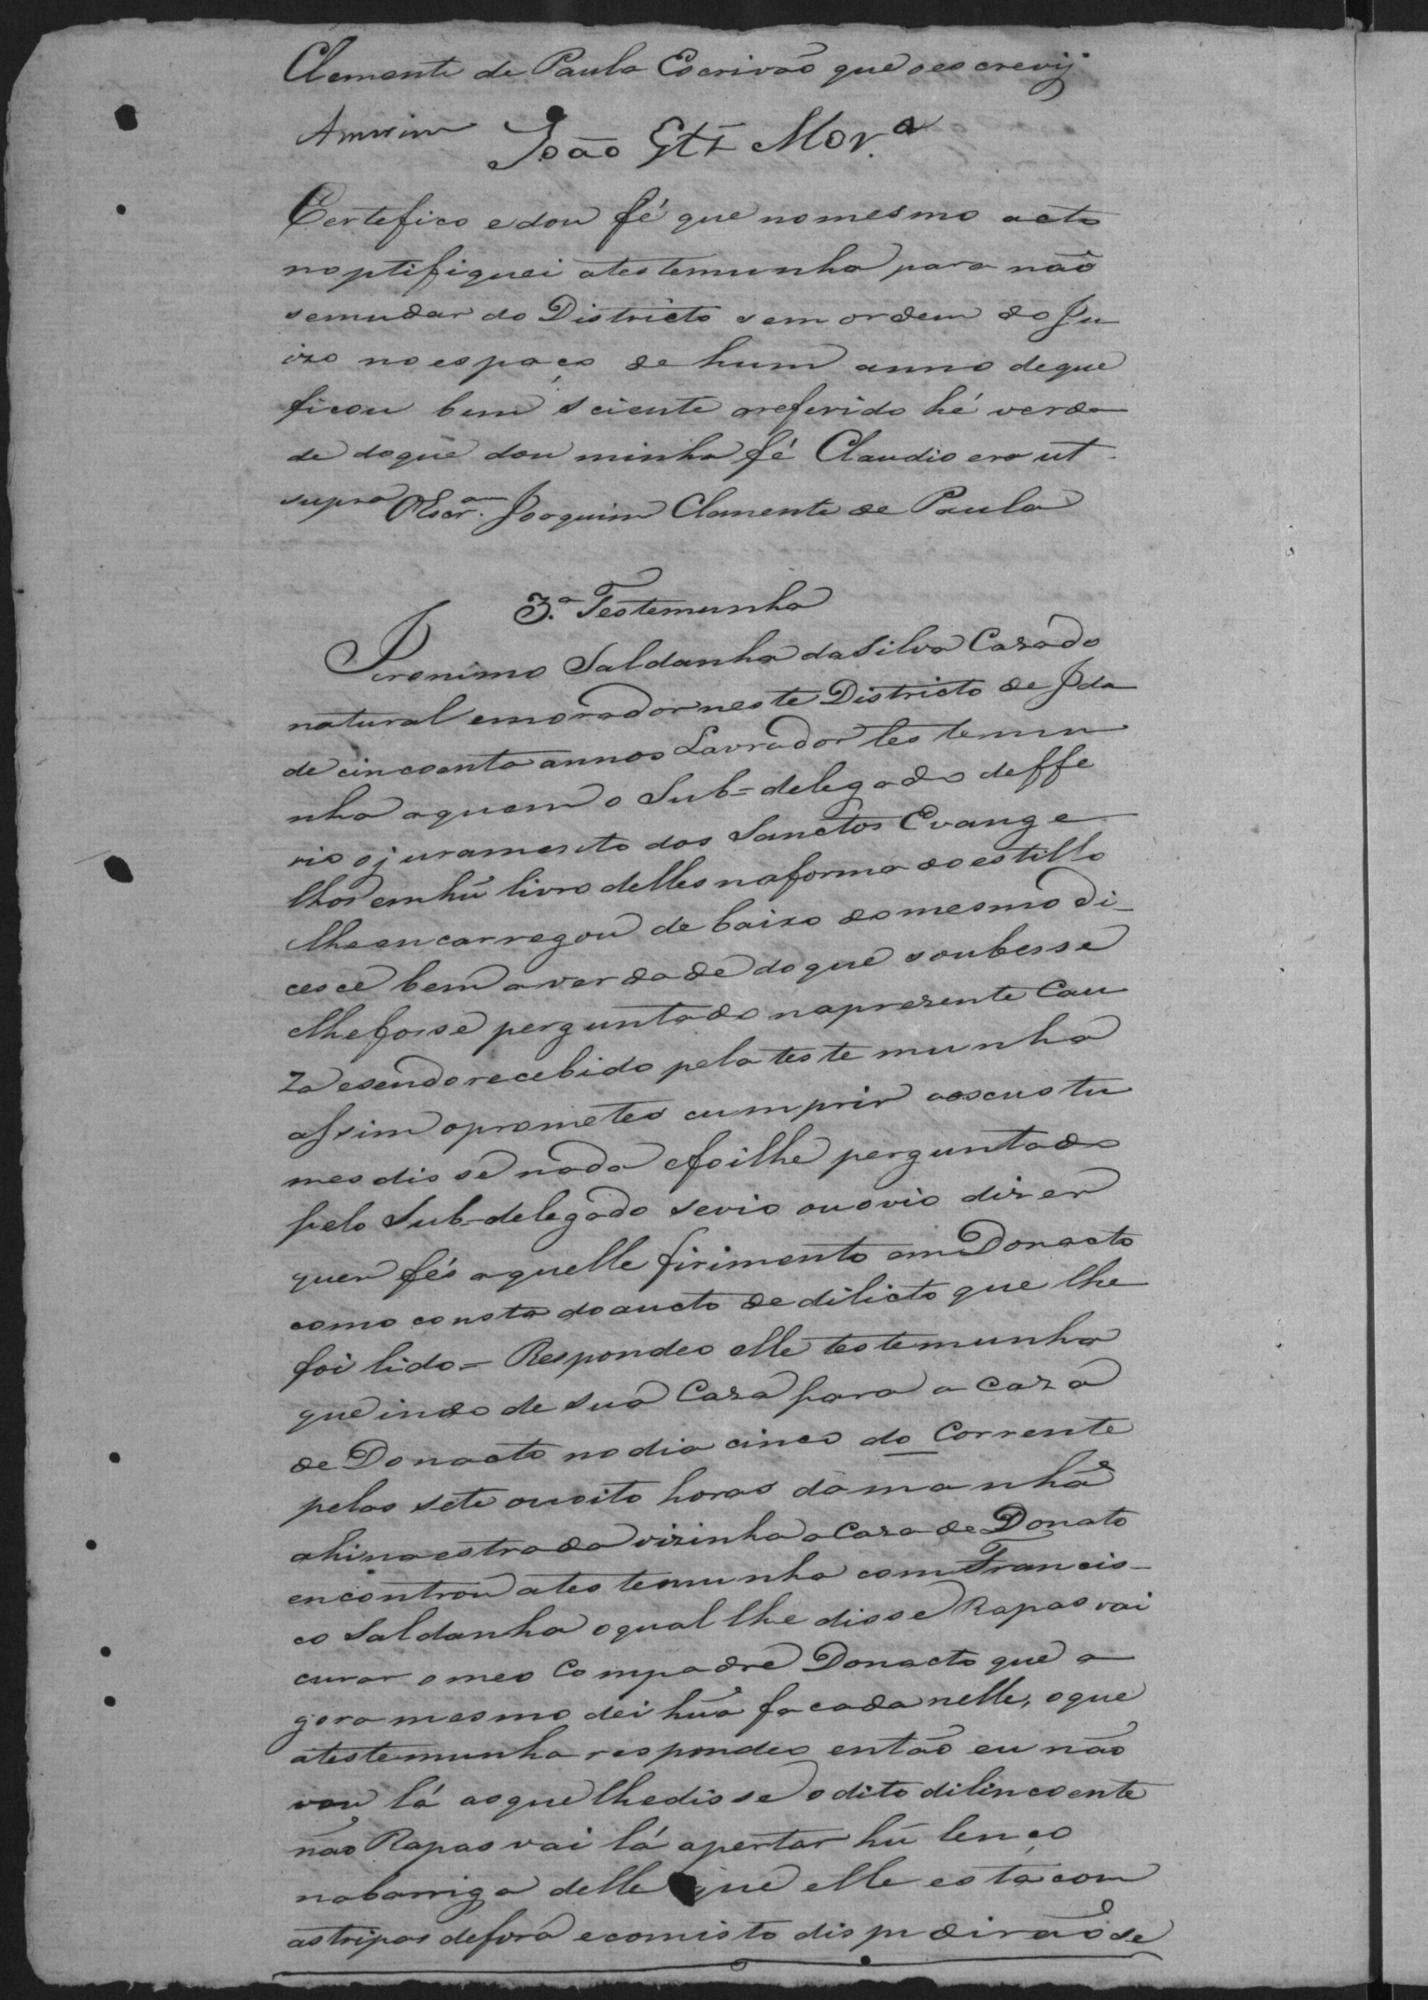 Clemente de Paula Escrivaõ que o escrevy
Amorim João Glz Mor.ª
Certefico e dou fé que no mesmo acto
noptifiquei atestemunha para naõ
semudar do Districto sem ordem do Ju
izo no espaço de hum anno deque
ficou bem sciente o referido hé verda
de doque dou minha fé Claudio era ut
supra O Escr.am Joaquim Clemente de Paula
3.ª Testemunha
Jeronimo Saldanha da Silva Cazado
natural emorador neste Districto de Ida
de cincoenta annos Lavrador testemu
nha aquem o Sub=delegado deffe
rio o juramento dos Sanctos Evange
lhos emhũ livro delles naforma do estillo
elhe encarregou de baixo domesmo di-
cesce bem averdade doque soubesse
elhefosse perguntado napresente Cau
za esendo recebido pela testemunha
assim oprometeo cumprir aoscustu
mes disse nada efoilhe perguntado
pelo Sub-delegado sevio ouovio dizer
quem fés aquelle firimento em Donacto
como consta do aucto de dilicto que lhe
foi lido= Respondeo elle testemunha
que indo de sua Caza para a caza
de Donacto no dia cinco do Corrente
pelas sete ouoito horas damanhã
ahi naestrada vizinha a Caza de Donato
encontrou atestemunha com Francis-
co Saldanha oqual lhe disse Rapas vai
curar o meo Compadre Donacto que a
gora mesmo dei hũa facada nelle, oque
atestemunha respondeo entaõ eu naõ
vou lá aoque lhedisse o dito dilincoente
naõ Rapas vai lá apertar hũ lenço
nabarriga delle que elle está com
astripas defora ecomisto dispedirão se